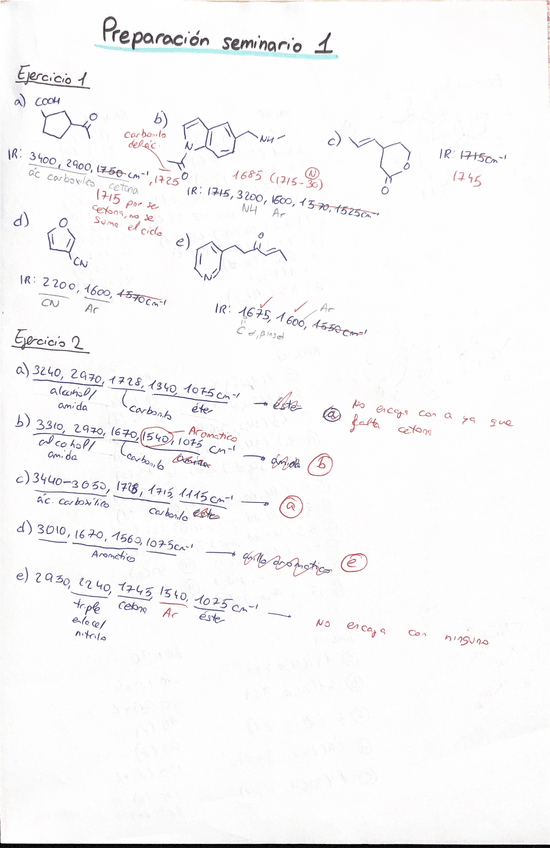 Preparación seminario 1
Ejercicio 1
a) COOH
O
IR: 3400, 2900, 1750 cm⁻¹, 1725
ác carboxílico cetona
1715 por ser
cetona, no se
suma el ciclo
b)
carbonilo
N
NH
O
1685 (1715-30) N
IR: 1715, 3200, 1600, 1570, 1525cm⁻¹
NH Ar
c)
O
O
IR: 1715cm⁻¹
1745
d)
O
CN
IR: 2200, 1600, 1570cm⁻¹
CN Ar
e)
O
N
IR: 1675, 1600, 1550cm⁻¹
Ar
Ejercicio 2
a) 3240, 2970, 1728, 1340, 1075cm⁻¹ → éster a No encaja con a ya que
alcohol/ carbonilo éter falta cetona
amida
b) 3310, 2970, 1670, 1540, 1075 cm⁻¹ → amida b
Aromatico
alcohol/ carbonilo
amida
c) 3440-3050, 1728, 1715, 1115cm⁻¹ → a
ác. carboxílico carbonilo
d) 3010, 1670, 1560, 1075cm⁻¹ → anillo aromatico e
Aromático
e) 2930, 2240, 1745, 1540, 1075cm⁻¹ → No encaja con ninguno
triple cetona Ar éster
enlace/
nitrilo